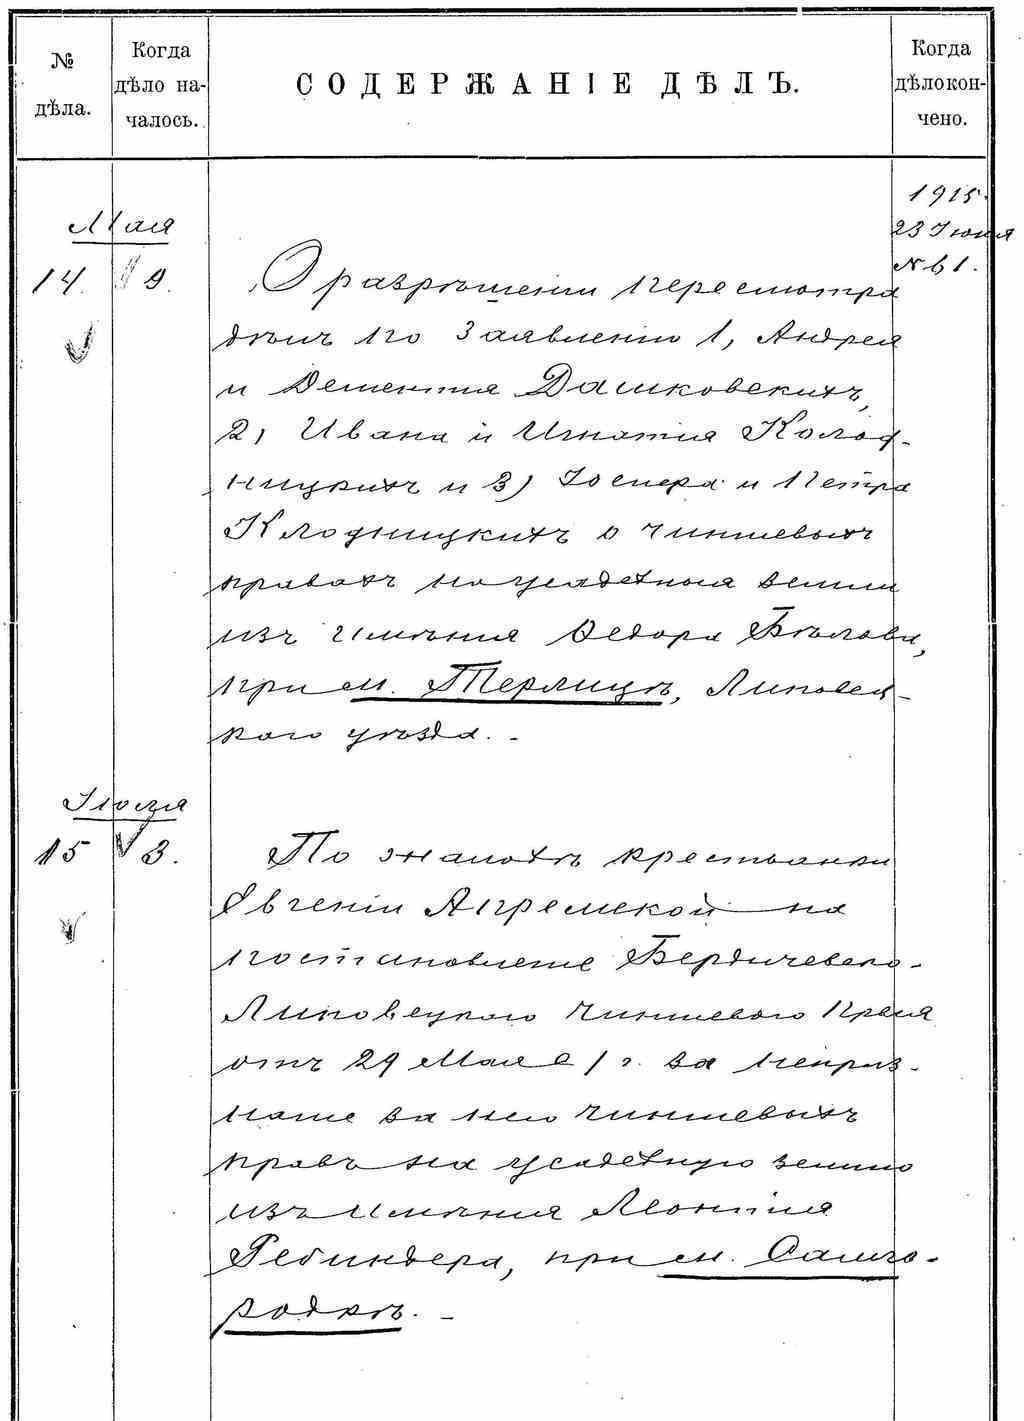 № дѣла.
Когда дѣло началось.
СОДЕРЖАНІЕ ДѢЛЪ.
Когда дѣло кончено.
1915.
23 Іюня
№ 61.
Мая
14. 9.
О разрѣшеніи пересмотра
дѣлъ по заявленію 1, Андрея
и Дементія Дашковскихъ,
2) Ивана и Игнатія Колод-
ницкихъ и 3) Іосифа и Петра
Клодницкихъ о чиншевыхъ
правахъ на усадебныя земли
изъ имѣнія Ѳедора Бѣлова,
при м. Терлицѣ, Липовец-
каго уѣзда. -
Іюля
15 3.
По жалобѣ крестьянки
Евгеніи Ягремской на
постановленіе Бердичевско-
Липовецкаго Чиншевого Прися
отъ 29 Мая с/г. за неприз-
наніе за нею чиншевыхъ
правъ на усадебную землю
изъ имѣнія Леонтія
Ребиндера, при м. Самго-
родкѣ. -